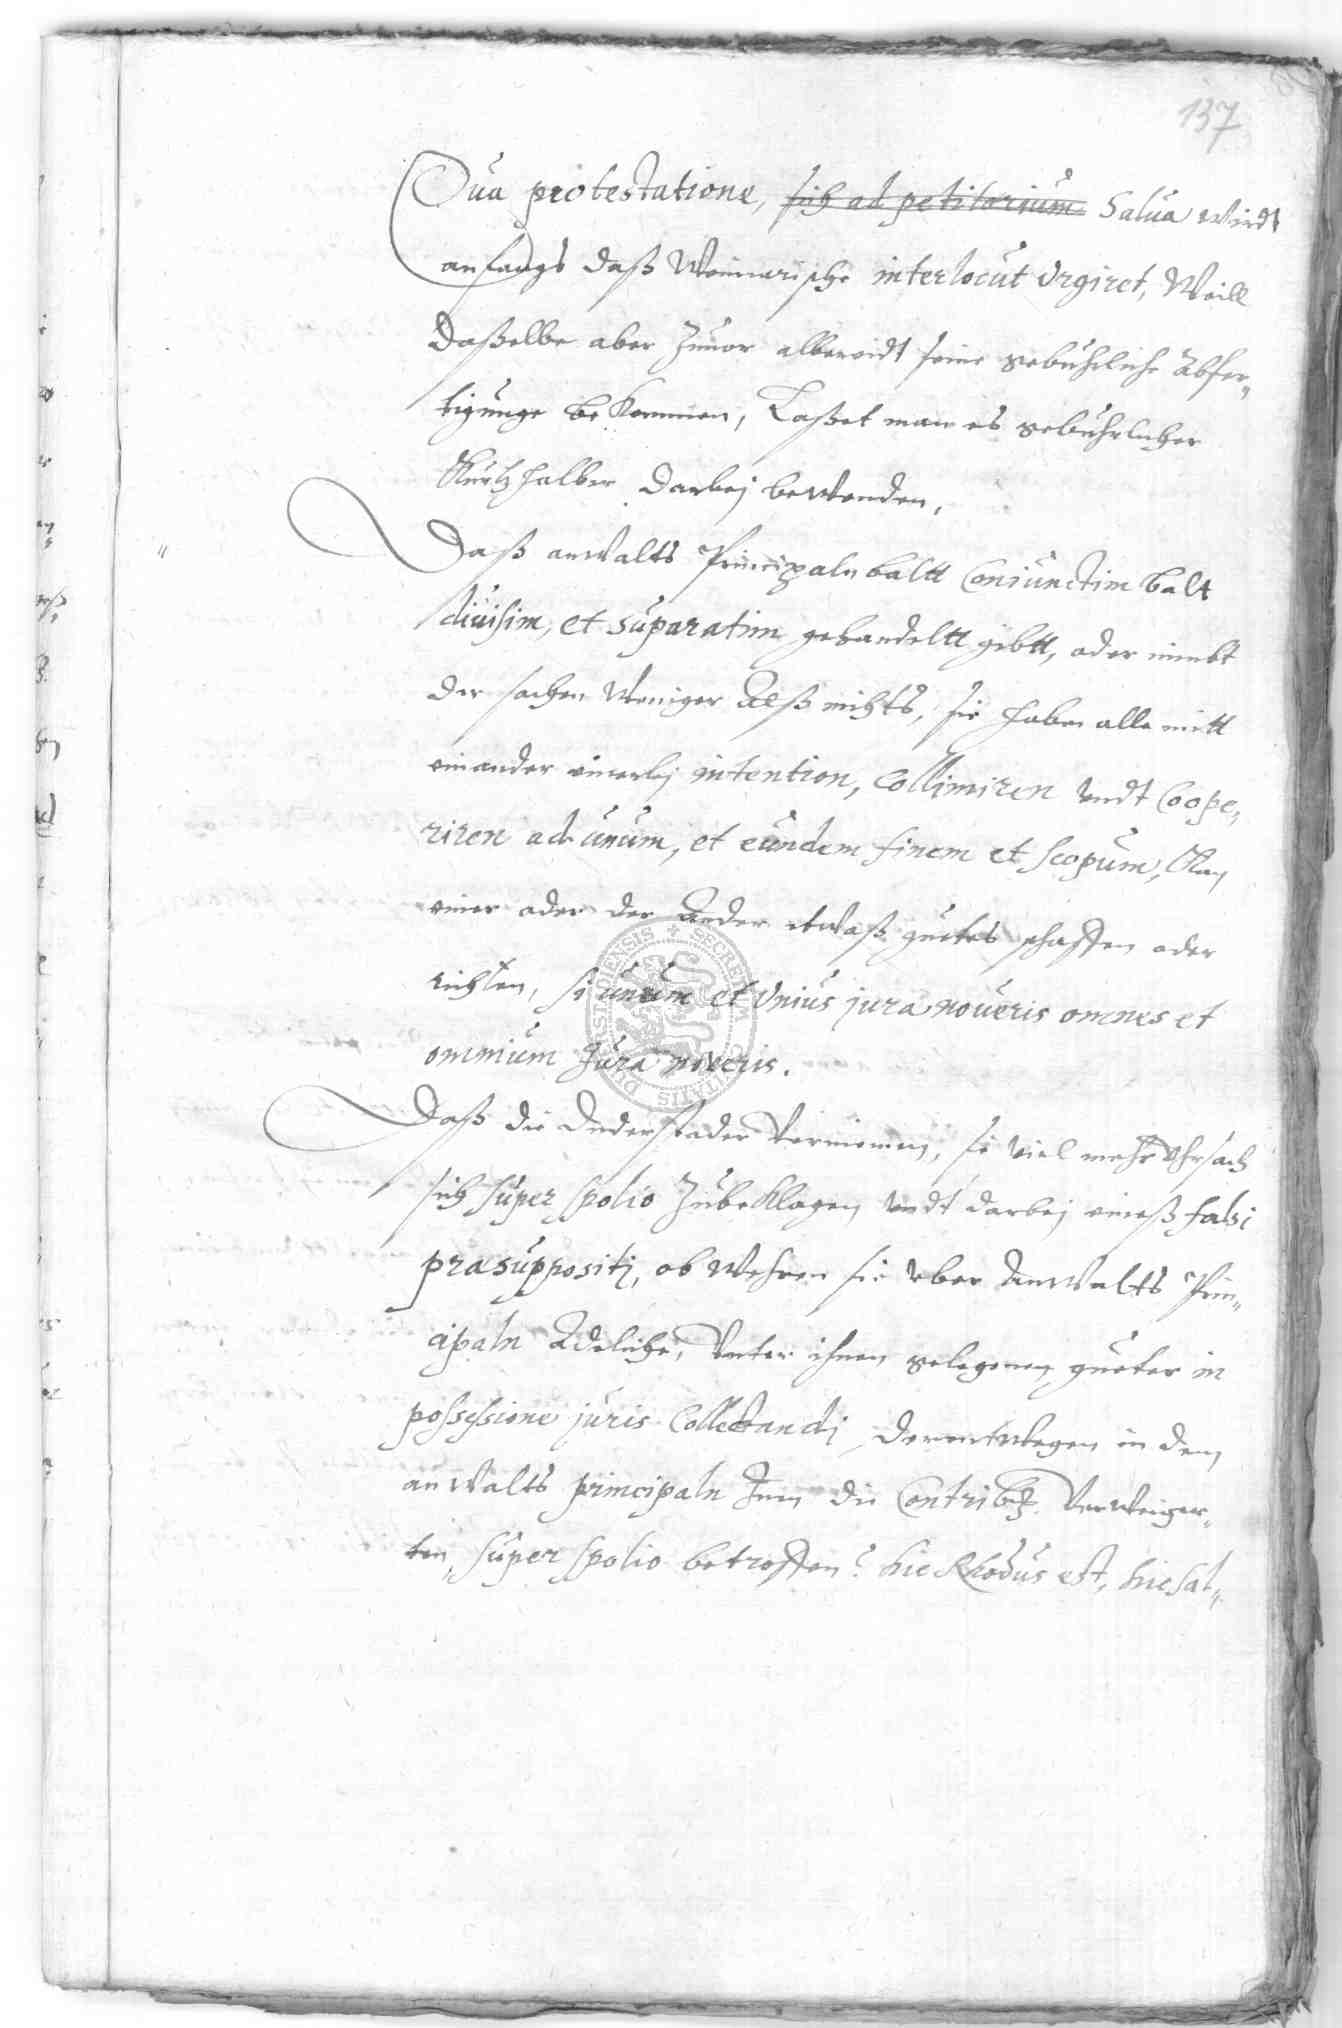 137
Qua protestatione, sich ad petitorium Salua wirdt
anfangs daß Weimarische interlocut Vrgiret, Weill
daßelbe aber zuuor albereidt seine gebuhrliche Abfer„
tigunge bekommen, Laßet man es gebuhrlicher
Kurtz halber darbej bewenden,
Daß anwalts Principaln baltt Coniunctim balt
diuisim, et suparatim gehandeltt gibtt, oder nimbt
der sachen weniger Alß nichts, sie haben alle mitt
einander einerlej intention, Collimiren vndt Coope„
riren ad unum, et eundem finem et scopum, Kan
einer oder der Ander etwaß guetes schaffen oder
richten, si unum et Vnius jura noueris omnes et
omnium Jura noveris.
Daß die Duderstader Vermeinen, sie viel mehr Vhrsach
sich super spolio Zubeklagen vndt darbej eineß falsi
prasuppositi, ob wehren sie vber Anwalts Prin„
cipaln Adeliche, Vnter ihnen gelegenen gueter in
possessione juris Collectandi, derentwegen in dem
anwalts principaln Jnn die Contrib. Verweiger„
ten, super spolio betroffen? hic Rhodus est, hic sal„
SECRETUM CIVITATIS DUDERSTADIENSIS